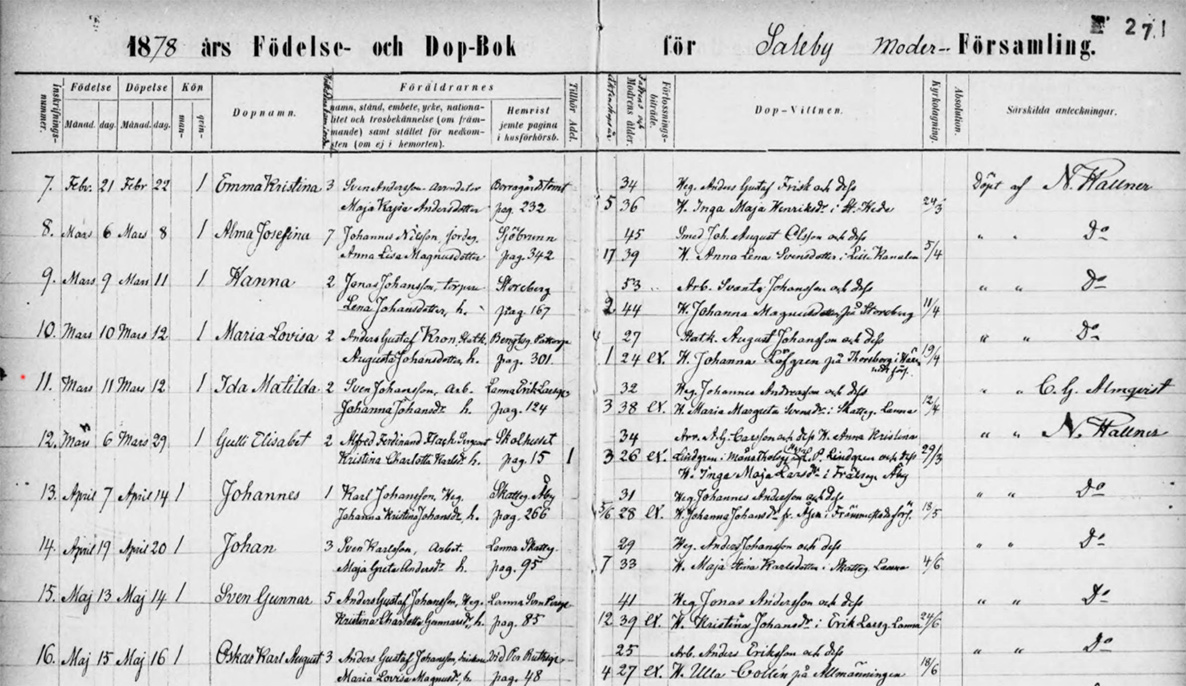 271
1878 års Födelse- och Dop-Bok för Saleby Moder- Församling.
Inskrifnings-nummer. Födelse Döpelse Kön Dopnamn. Föräldrarnes Tillhör Adel. Modrens ålder. Förlossnings-biträde. Dop-Vittnen. Kyrkotagning. Absolution. Särskilda anteckningar.
Månad. dag. Månad. dag. man- qvin- namn, stånd, embete, yrke, nationalitet och trosbekännelse (om främmande) samt stället för nedkomsten (om ej i hemorten). Hemvist jemte pagina i husförhörsb.
7. Febr. 21 Febr 22 1 Emma Kristina 3 Sven Andersson Arrendator Borragårdstomt 34 Heg. Anders Gustaf Frisk och dess Döpt af N. Hallner
Maja Kajsa Andersdotter pag. 232 5 36 H. Inga Maja Henriksdr i St. Hede 24/3
8. Mars 6 Mars 8 1 Alma Josefina 7 Johannes Nilsson, jordeg. Sjöbrunn 45 Smed Joh. August Olsson och dess " " Do
Anna Lisa Magnusdotter pag. 342 17 39 H. Anna Lena Svensdotter i Lilli Kanalen 5/4
9. Mars 9 Mars 11 1 Hanna 2 Jonas Johansson, torpare Storeberg 53 Arb. Svante Johansson och dess " " Do
Lena Johansdotter, h. pag. 167 2 44 H. Johanna Magnusdotter på Storeberg 11/4
10. Mars 10 Mars 12 1 Maria Lovisa 2 Anders Gustaf Kron, Statk. 27 Statk. August Johansson och dess " " Do
Augusta Johansdotter, h. pag. 301 1 24 ex. H. Johanna Löfgren på Thoreborg i 19/4
11. Mars 11 Mars 12 1 Ida Matilda 2 Sven Johansson, Arb. Lanna Erik Larsg. 32 Heg. Johannes Andreasson och dess " " C. G. Almqvist
Johanna Johansdr h. pag. 124 3 38 ex. H. Maria Margreta Svensdr i Skatteg. Lanna 12/4
12. Mars 6 Mars 29 1 Gulli Elisabet 2 Alfred Ferdinand Flach, Sergeant Skolhuset 34 Arr. A.G. Carlsson och dess H. Anna Kristina " " N. Hallner
Kristina Charlotta Karlsdr h. pag. 15 1 3 26 ex. Lindgren i P. Lindgren och dess 29/3
H. Inga Maja Larsdr i Frälseg. Åby
13. April 7 April 14 1 Johannes 1 Karl Johansson, Heg. Skatteg. Åby 31 Heg. Johannes Andersson och dess " " Do
Johanna Kristina Johansdr h. pag. 266 5/6 28 ex. H. Johanna Johansdr fr. Åsen i 18/5
14. April 19 April 20 1 Johan 3 Sven Karlsson, Arbet. Lanna Skatteg. 29 Heg. Anders Johansson och dess " " Do
Maja Greta Andersdr h. pag. 95 7 33 H. Maja Stina Karlsdotter i Skatteg. Lanna 4/6
15. Maj 13 Maj 14 1 Sven Gunnar 5 Anders Gustaf Johansson, Heg. Lanna Sven Persg. 41 Heg Jonas Andersson och dess " " Do
Kristina Charlotta Gunnarsdr, h. pag. 85 12 39 ex. H. Kristina Johansdr i Erik Larsg Lanna 24/6
16. Maj 15 Maj 16 1 Oskar Karl August 3 Anders Gustaf Johansson, 25 Arb. Anders Eriksson och dess " " Do
Maria Lovisa Magnusdr, h pag. 48 4 27 ex. H. Ulla Collén på Allmänningen 18/6